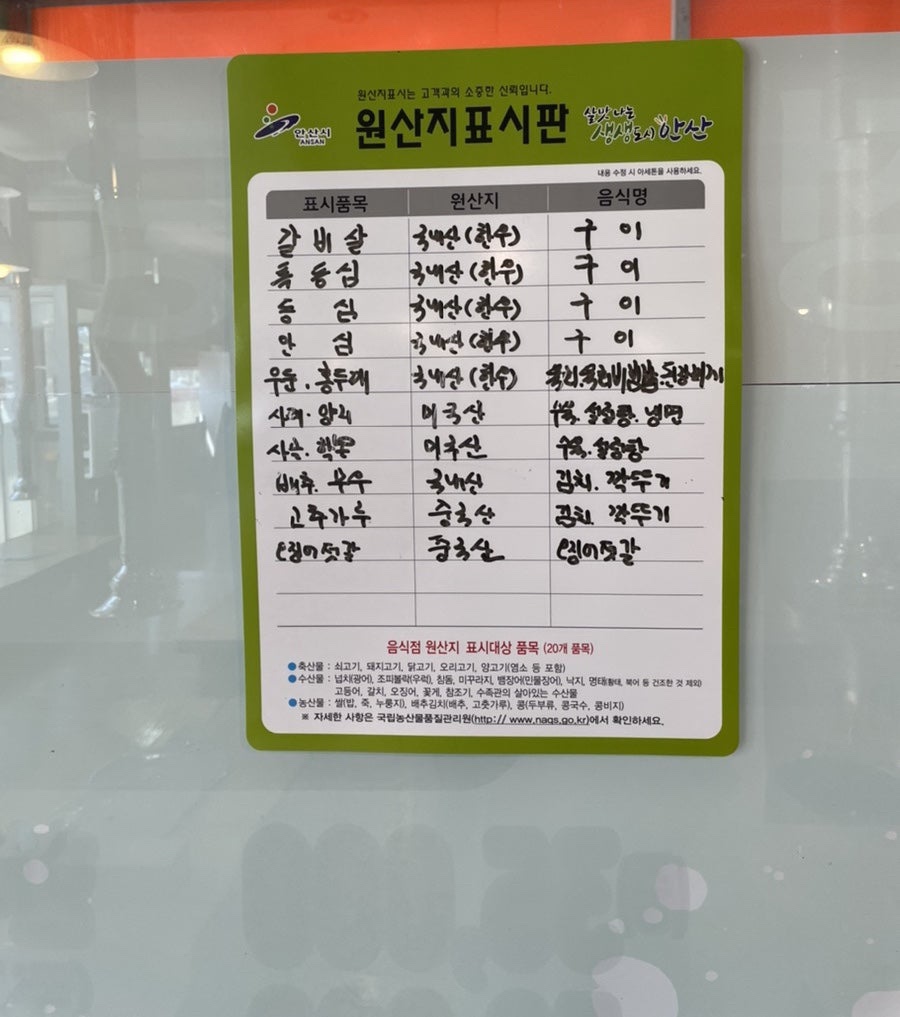 원산지표시는 고객과의 소중한 신뢰입니다.
안산시
ANSAN
원산지표시판
살맛나는
생생도시 안산
내용 수정 시 아세톤을 사용하세요.
표시품목 원산지 음식명
갈비살 국내산(한우) 구이
특등심 국내산(한우) 구이
등심 국내산(한우) 구이
안심 국내산(한우) 구이
우둔.홍두깨 국내산(한우) 육회.육회비빔밥.된장찌개
사태.양지 미국산 수육.설렁탕.냉면
사골.잡뼈 미국산 수육.설렁탕
배추.무우 국내산 김치.깍뚜기
고추가루 중국산 김치.깍뚜기
오징어젓갈 중국산 오징어젓갈
음식점 원산지 표시대상 품목 (20개 품목)
●축산물 : 쇠고기, 돼지고기, 닭고기, 오리고기, 양고기(염소 등 포함)
●수산물 : 넙치(광어), 조피볼락(우럭), 참돔, 미꾸라지, 뱀장어(민물장어), 낙지, 명태(황태, 북어 등 건조한 것 제외)
고등어, 갈치, 오징어, 꽃게, 참조기, 수족관의 살아있는 수산물
●농산물 : 쌀(밥, 죽, 누룽지), 배추김치(배추, 고춧가루), 콩(두부류, 콩국수, 콩비지)
※ 자세한 사항은 국립농산물품질관리원(http:// www.naqs.go.kr)에서 확인하세요.